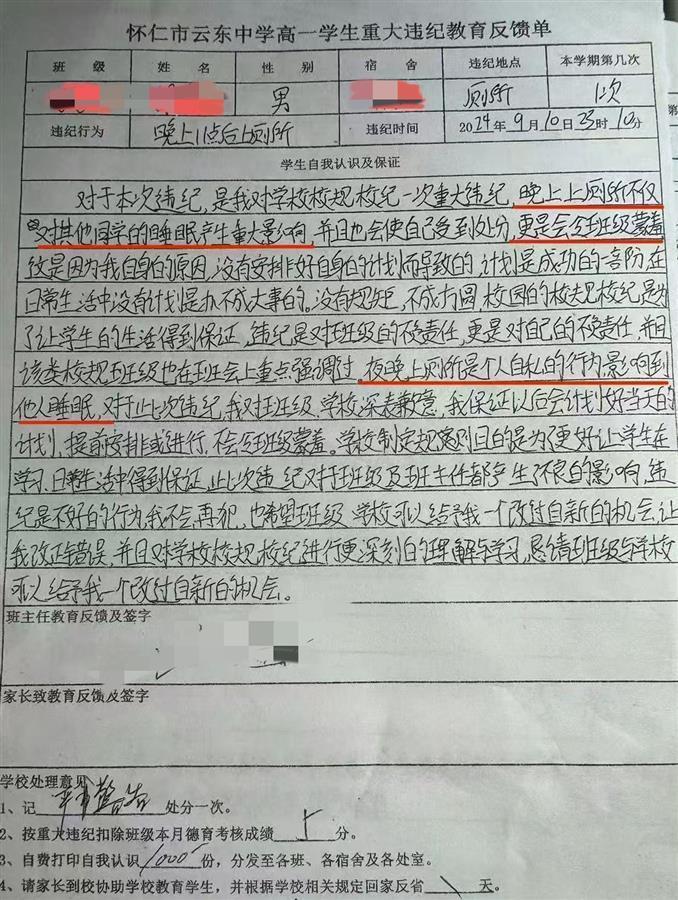 怀仁市云东中学高一学生重大违纪教育反馈单
班 级 姓 名 性 别 宿 舍 违纪地点 本学期第几次
男 厕所 1次
违纪行为 晚上11点后上厕所 违纪时间 2024年9月10日23时10分
学生自我认识及保证
对于本次违纪，是我对学校校规校纪一次重大违纪，晚上上厕所不仅
对其他同学的睡眠产生重大影响，并且也会使自己受到处分，更是会令班级蒙羞
这是因为我自身的原因，没有安排好自身的计划而导致的，计划是成功的一部阶，在
日常生活中没有计划是办不成大事的。没有规矩，不成方圆，校园的校规校纪，是为
了让学生的生活得到保证，违纪是对班级的不负责任，更是对自己的不负责任，并且
该类校规班级也在班会上重点强调过，夜晚上厕所是个人自私的行为，影响到
他人睡眠，对于此次违纪，我对班级、学校深表歉意，我保证以后会计划好当天的
计划，提前安排或进行，不会令班级蒙羞。学校制定规章原则目的是为了更好让学生在
学习、日常生活中得到保证，此次违纪对于班级及班主任都产生了不良的影响，违
纪是不好的行为，我不会再犯，也希望班级、学校可以给予我一个改过自新的机会，让
我改正错误，并且对学校校规、校纪进行更深刻的理解与学习，恳请班级与学校
可以给予我一个改过自新的机会。
班主任教育反馈及签字
家长致教育反馈及签字
学校处理意见
1、记 严重警告 处分一次。
2、按重大违纪扣除班级本月德育考核成绩 分。
3、自费打印自我认识 1000 份，分发至各班、各宿舍及各处室。
4、请家长到校协助学校教育学生，并根据学校相关规定回家反省 \ 天。